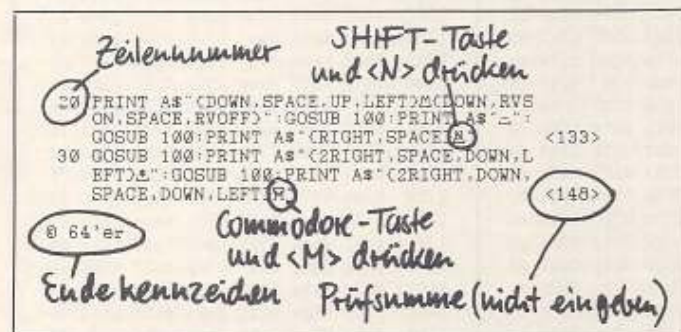 Zeilennummer
SHIFT-Taste
und <N> drücken
20 PRINT A$"(DOWN,SPACE,UP,LEFT)M(DOWN,RVS
ON,SPACE,RVOFF)":GOSUB 100:PRINT A$"_":
GOSUB 100:PRINT A$"(RIGHT,SPACE)N" <133>
30 GOSUB 100:PRINT A$"(2RIGHT,SPACE,DOWN,L
EFT)":GOSUB 100:PRINT A$"(2RIGHT,DOWN,
SPACE,DOWN,LEFT)M" <148>
© 64'er
Commodore-Taste
und <M> drücken
Endekennzeichen
Prüfsumme (nicht eingeben)